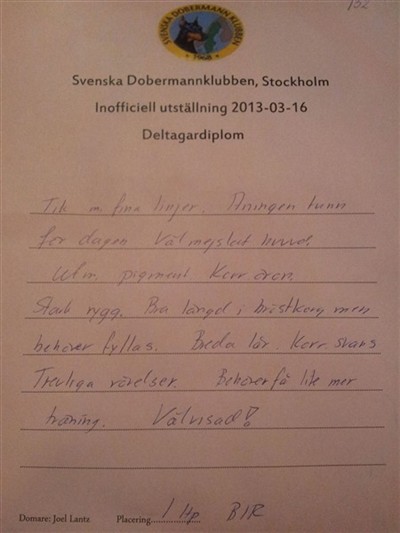 152
SVENSKA DOBERMANN KLUBBEN
1968
Svenska Dobermannklubben, Stockholm
Inofficiell utställning 2013-03-16
Deltagardiplom
Tik m. fina linjer. Aningen tunn
för dagen Välmejslat huvud.
Utm. pigment Korr öron.
Stark rygg. Bra längd i bröstkorg men
behöver fyllas. Breda lår. Korr svans
Trevliga rörelser. Behöver få lite mer
träning. Välvisad!
Domare: Joel Lantz Placering 1 Hp BIR